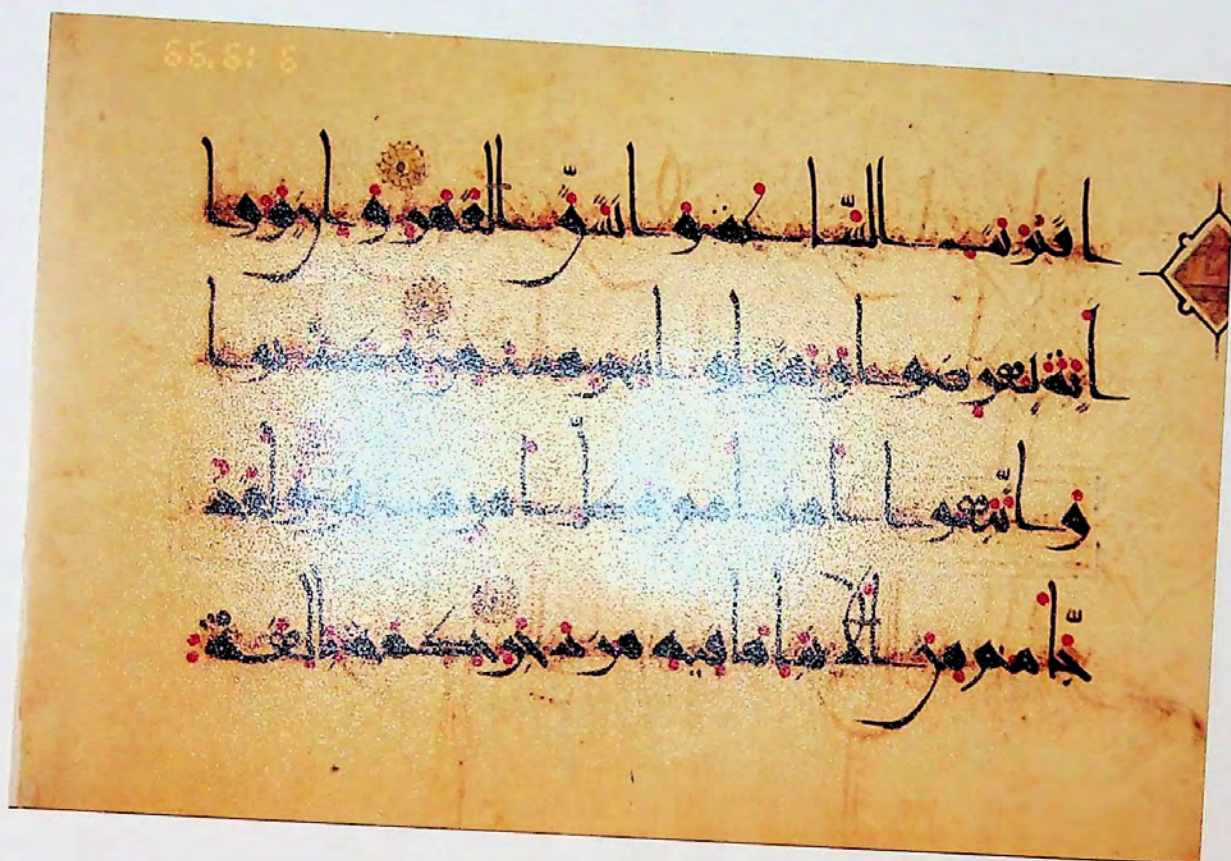 اقتربت الساعة وانشق القمر وان يروا
اية يعرضوا ويقولوا سحر مستمر وكذبوا
واتبعوا اهواءهم وكل امر مستقر ولقد
جاءهم من الانباء ما فيه مزدجر حكمة بالغة